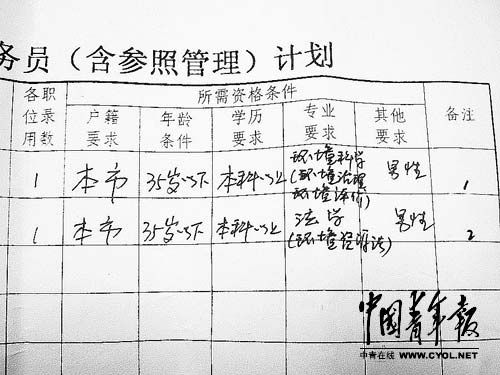 务员（含参照管理）计划
各职位录用数
所需资格条件
备注
户籍要求
年龄条件
学历要求
专业要求
其他要求
1
本市
35岁以下
本科以上
环境科学
(环境治理
环境评价)
男性
1
1
本市
35岁以下
本科以上
法学
(环境资源法)
男性
2
中国青年报
中青在线 WWW.CYOL.NET